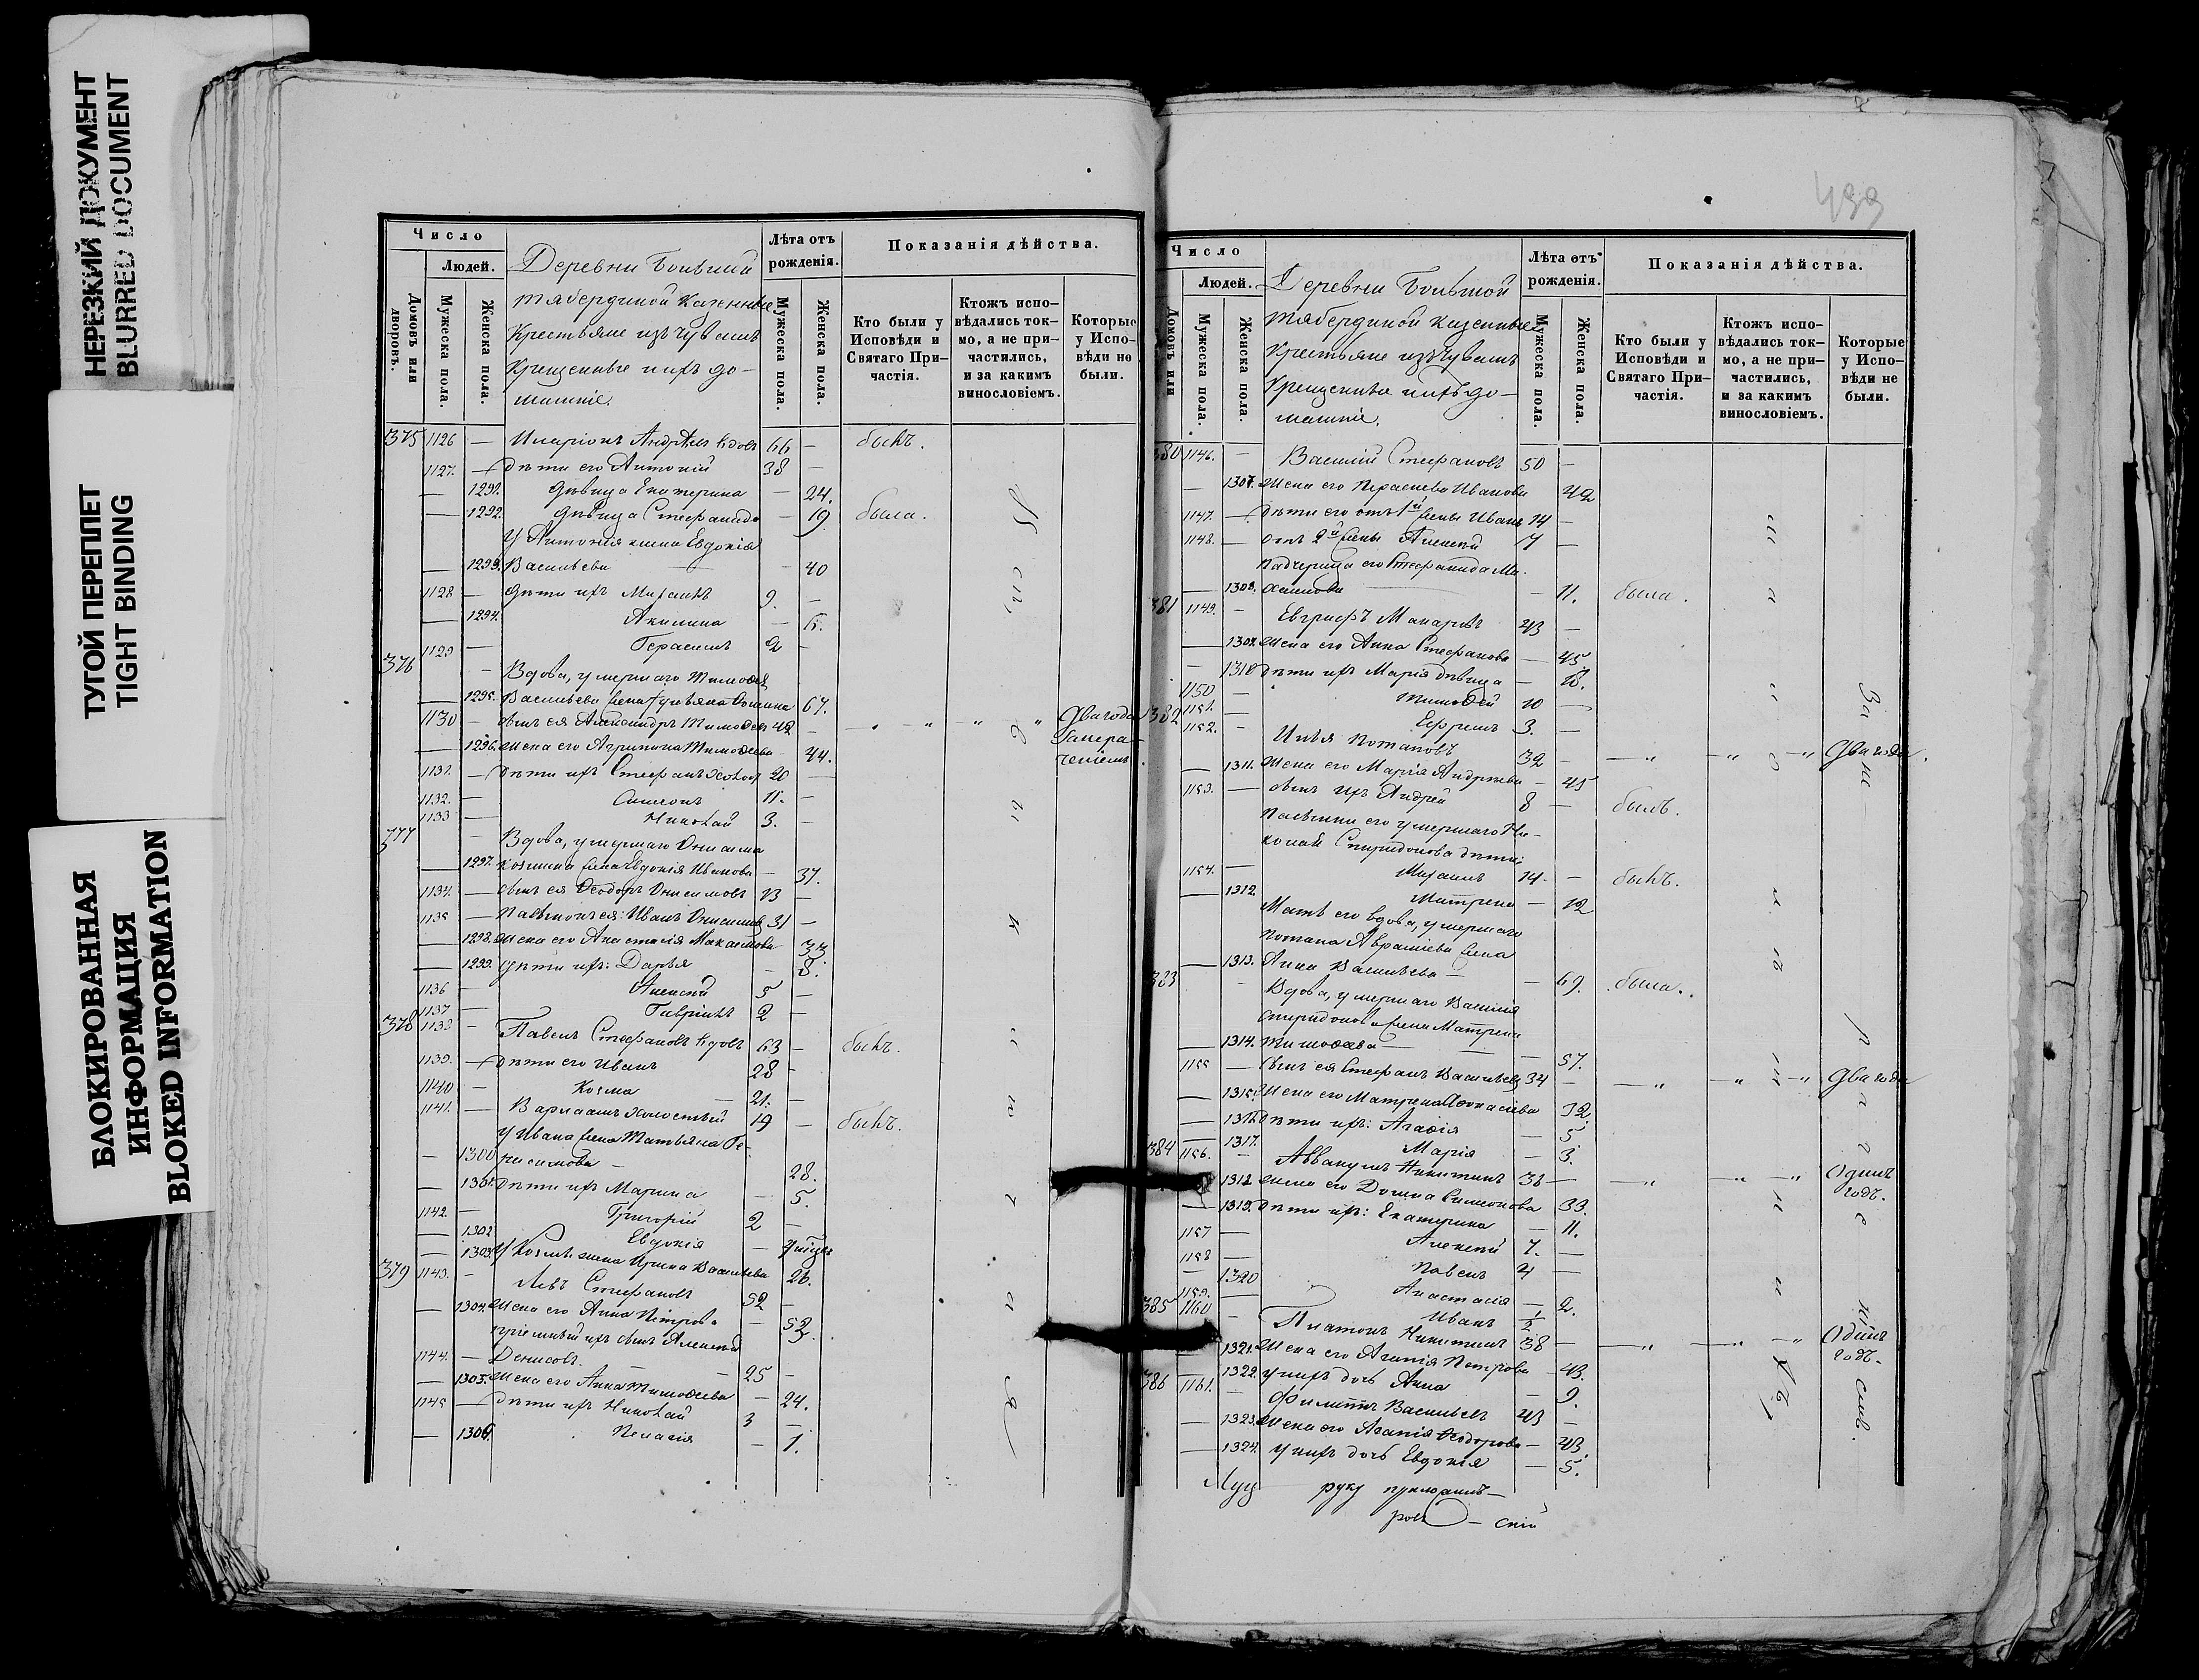 НЕРЕЗКИЙ ДОКУМЕНТ
BLURRED DOCUMENT
ТУГОЙ ПЕРЕПЛЕТ
TIGHT BINDING
БЛОКИРОВАННАЯ
ИНФОРМАЦИЯ
BLOKED INFORMATION
Число
Людей.
Домовъ или дворовъ.
Мужеска пола.
Женска пола.
Деревни Большой
Тябердиной Казенные
Крестьяне изъ чувашъ
Крещенные и ихъ до-
машніе.
Лѣта отъ рожденія.
Мужеска пола.
Женска пола.
Показанія дѣйства.
Кто были у Исповѣди и Святаго При-частія.
Ктожъ испо-вѣдались ток-мо, а не при-частились, и за какимъ винословіемъ.
Которые у Испо-вѣди не были.
375 1126 — Иларіонъ Андреевъ вдовъ 66 — былъ.
1127. — дѣти его Антоній 38 —
— 1291. дѣвица Екатерина — 24.
— 1292. дѣвица Стефанида — 19. была.
У Антонія жена Евдокія
— 1293. Васильева — 40
1128 — дѣти ихъ Михаилъ 9. —
— 1294. Акилина — 6.
1129 — Герасимъ 2 —
376 — Вдова, умершаго Тимофея
— 1295. Васильева жена Ульяна 67.
1130 — сынъ ея Александръ Тимофеевъ 42 — „ „ „ „ Два года
— 1296. жена его Агрипина Тимофеева 44. за нера-
1131. — дѣти ихъ Стефанъ холост 20 — ченіемъ.
1132. — Симеонъ 11. —
1133 — Николай 3. —
377 — Вдова, умершаго Онисима
— 1297. Козмина жена Евдокія Иванова — 37.
1134. — сынъ ея Ѳеодоръ Онисимовъ 13 —
1135 — Пасынокъ ея: Иванъ Онисимовъ 31 —
— 1298. жена его Анастасія Максимова 33
— 1299. дѣти ихъ: Дарья — 8.
1136 — Алексѣй 5 —
1137 — Гавріилъ 2 —
378 1138 — Павелъ Стефановъ вдовъ 63 — былъ.
1139. — дѣти его Иванъ 28 —
1140 — Козма 21. —
1141. — Варлаамъ холостый 19 — былъ.
У Ивана жена Татьяна Ге-
— 1300 расимова — 28.
— 1301. дѣти ихъ Марина — 5.
1142. — Григорій 2 —
— 1302 Евдокія —
— 1303. У Козмы жена Ирина Васильева 26.
379 1143. — Левъ Стефановъ 52 —
— 1304. жена его Анна Петрова — 52.
пріемный ихъ сынъ Алексѣй
1144. — Денисовъ. — 25 —
— 1305. жена его Анна Тимофеева — 24.
1145 — дѣти ихъ Николай 3 —
— 1306. Пелагія — 1.
499
Число
Людей.
Домовъ или
Мужеска пола.
Женска пола.
Деревни Большой
Тябердиной казенные
Крестьяне изъ чувашъ
Крещенные и ихъ до-
машніе.
Лѣта отъ рожденія.
Мужеска пола.
Женска пола.
Показанія дѣйства.
Кто были у Исповѣди и Святаго При-частія.
Ктожъ испо-вѣдались ток-мо, а не при-частились, и за какимъ винословіемъ.
Которые у Испо-вѣди не были.
380 1146. — Василій Стефановъ 50 —
— 1307. жена его Параскева Иванова 42
1147. — дѣти его отъ 1й жены Иванъ 14 —
1148. — отъ 2й жены Алексѣй 7 —
Падчерица его Стефанида Ми-
— 1308. хаилова — 11. была.
381 1149. — Евграфъ Макаровъ 43 —
— 1309. жена его Анна Стефанова — 45
— 1310 дѣти ихъ Марія дѣвица — 18.
1150 — Тимофей 10 —
1151. — Ефремъ 3. —
382 1152. — Илья Потаповъ 39 — — „ — „ — „ Два года.
— 1311. жена его Марія Андреева — 45
1153. — сынъ ихъ Андрей 8 — былъ.
Пасынки его умершаго Ни-
колая Спиридонова дѣти:
1154. — Михаилъ 14. — былъ.
— 1312. Матрена — 12
Мать его вдова, умершаго
Потапа жена
— 1313. Анна Васильева — 69. была.
383 — Вдова, умершаго Василія
Спиридонова жена Матрена
— 1314. Тимофеева — 57.
1155 — сынъ ея Стефанъ Васильевъ 34 — — „ — „ — „ Два года
— 1315. жена его Матрена 32.
— 1316. дѣти ихъ: Агафія — 5
— 1317. Марія — 3.
384 1156. — Аввакумъ Никитинъ 36 — — „ — „ — „ Одинъ
1318. жена его Домна Симеонова 33. годъ.
— 1319. дѣти ихъ: Екатерина — 11.
1157 — Алексѣй 7. —
1158 — Павелъ 4 —
— 1320 Анастасія — 2.
1159. — Иванъ 1/2
385 1160 — Платонъ Никитинъ 38 — — „ — „ — „ Одинъ
1321. жена его Агафія Петрова — 43. годъ.
— 1322. у нихъ дочь Анна — 9.
386 1161. — Филиппъ Васильевъ 43 —
— 1323. жена его Агафія Ѳеодорова — 43.
— 1324. у нихъ дочь Евдокія — 5.
руку приложилъ —